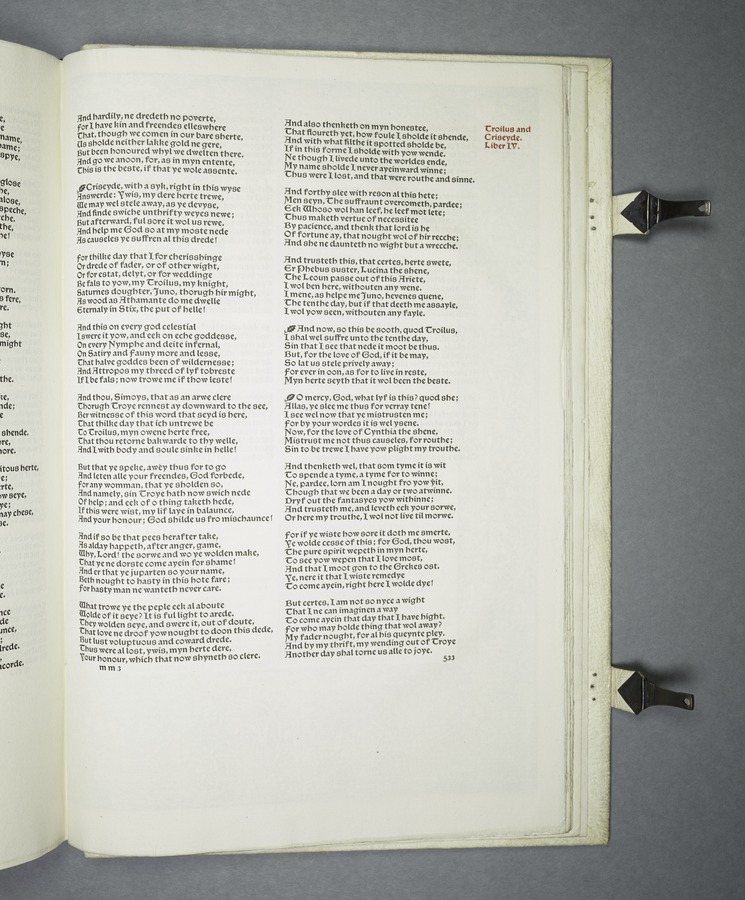 name,
ame;
spye,
glose
he,
alose,
speche,
che.
the,
he!
orn.
s fere,
re.
ght
se,
might
the.
shende.
ore.
itous herte,
erte,
ow seye,
ye;
nay chese,
se.
nce
de
unce,
drede.
acorde.
And hardily, ne dredeth no poverte,
For I have kin and freendes elleswhere
That, though we comen in our bare sherte,
Us sholde neither lakke gold ne gere,
But been honoured whyl we dwelten there.
And go we anoon, for, as in myn entente,
This is the beste, if that ye wole assente.
Criseyde, with a syk, right in this wyse
Answerde: Ywis, my dere herte trewe,
We may wel stele away, as ye devyse,
And finde swiche unthrifty weyes newe;
But afterward, ful sore it wol us rewe.
And help me God so at my moste nede
As causeles ye suffren al this drede!
For thilke day that I for cherisshinge
Or drede of fader, or of other wight,
Or for estat, delyt, or for weddinge
Be fals to yow, my Troilus, my knight,
Saturnes doughter, Juno, thorugh hir might,
As wood as Athamante do me dwelle
Eternaly in Stix, the put of helle!
And this on every god celestial
I swere it yow, and eek on eche goddesse,
On every Nymphe and deite infernal,
On Satiry and Fauny more and lesse,
That halve goddes been of wildernesse;
And Attropos my threed of lyf tobreste
If I be fals; now trowe me if thow leste!
And thou, Simoys, that as an arwe clere
Thorugh Troye rennest ay downward to the see,
Ber witnesse of this word that seyd is here,
That thilke day that ich untrewe be
To Troilus, myn owene herte free,
That thou retorne bakwarde to thy welle,
And I with body and soule sinke in helle!
But that ye speke, awey thus for to go
And leten alle your freendes, God forbede,
For any womman, that ye sholden so,
And namely, sin Troye hath now swich nede
Of help; and eek of o thing taketh hede,
If this were wist, my lif laye in balaunce,
And your honour; God shilde us fro mischaunce!
And if so be that pees herafter take,
As alday happeth, after anger, game,
Why, Lord! the sorwe and wo ye wolden make,
That ye ne dorste come ayein for shame!
And er that ye juparten so your name,
Beth nought to hasty in this hote fare;
For hasty man ne wanteth never care.
What trowe ye the peple eek al aboute
Wolde of it seye? It is ful light to arede.
They wolden seye, and swere it, out of doute,
That love ne droof yow nought to doon this dede,
But lust voluptuous and coward drede.
Thus were al lost, ywis, myn herte dere,
Your honour, which that now shyneth so clere.
m m 3
And also thenketh on myn honestee,
That floureth yet, how foule I sholde it shende,
And with what filthe it spotted sholde be,
If in this forme I sholde with yow wende.
Ne though I livede unto the worldes ende,
My name sholde I never ayeinward winne;
Thus were I lost, and that were routhe and sinne.
And forthy slee with reson al this hete;
Men seyn, The suffraunt overcometh, pardee;
Eek Whoso wol han leef, he leef mot lete;
Thus maketh vertue of necessitee
By pacience, and thenk that lord is he
Of fortune ay, that nought wol of hir recche;
And she ne daunteth no wight but a wrecche.
And trusteth this, that certes, herte swete,
Er Phebus suster, Lucina the shene,
The Leoun passe out of this Ariete,
I wol ben here, withouten any wene.
I mene, as helpe me Juno, hevenes quene,
The tenthe day, but if that deeth me assayle,
I wol yow seen, withouten any fayle.
And now, so this be sooth, quod Troilus,
I shal wel suffre unto the tenthe day,
Sin that I see that nede it moot be thus.
But, for the love of God, if it be may,
So lat us stele prively away;
For ever in oon, as for to live in reste,
Myn herte seyth that it wol been the beste.
O mercy, God, what lyf is this? quod she;
Allas, ye slee me thus for verray tene!
I see wel now that ye mistrusten me;
For by your wordes it is wel ysene.
Now, for the love of Cynthia the shene,
Mistrust me not thus causeles, for routhe;
Sin to be trewe I have yow plight my trouthe.
And thenketh wel, that som tyme it is wit
To spende a tyme, a tyme for to winne;
Ne, pardee, lorn am I nought fro yow yit,
Though that we been a day or two atwinne.
Dryf out the fantasyes yow withinne;
And trusteth me, and leveth eek your sorwe,
Or here my trouthe, I wol not live til morwe.
For if ye wiste how sore it doth me smerte,
Ye wolde cesse of this; for God, thou wost,
The pure spirit wepeth in myn herte,
To see yow wepen that I love most,
And that I moot gon to the Grekes ost.
Ye, nere it that I wiste remedye
To come ayein, right here I wolde dye!
But certes, I am not so nyce a wight
That I ne can imaginen a way
To come ayein that day that I have hight.
For who may holde thing that wol away?
My fader nought, for al his queynte pley.
And by my thrift, my wending out of Troye
Another day shal torne us alle to joye.
533
Troilus and
Criseyde.
Liber IV.